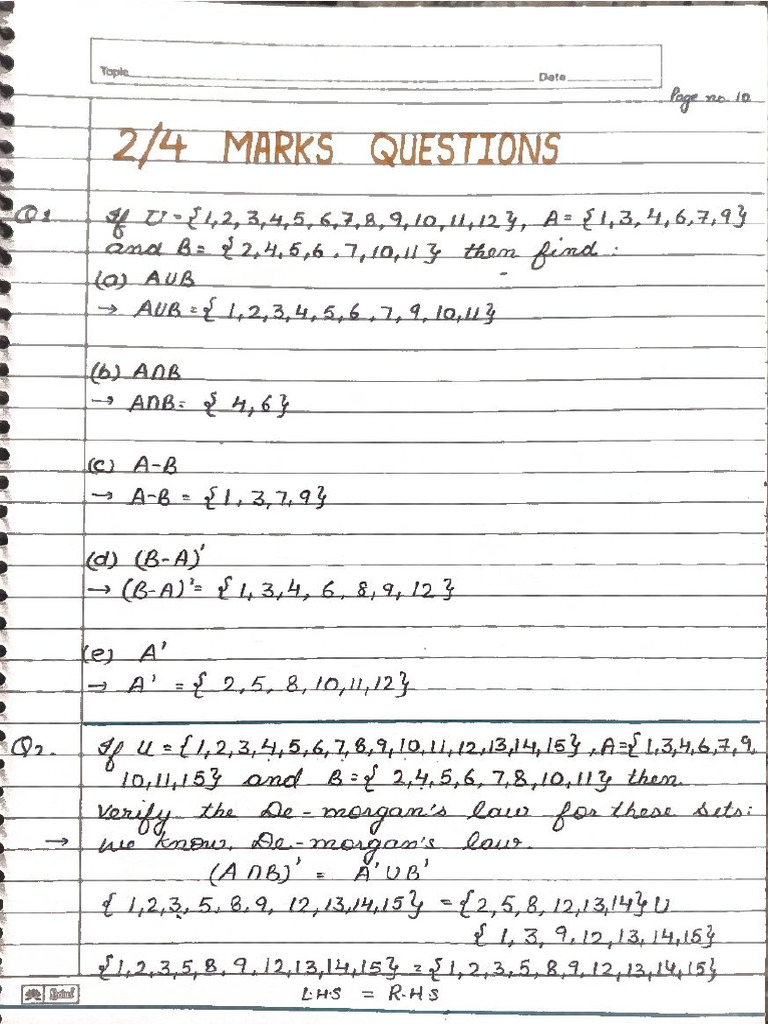 Topic Date
Page no. 10
2/4 MARKS QUESTIONS
Q1 If U = {1,2,3,4,5,6,7,8,9,10,11,12}, A = {1,3,4,6,7,9}
and B = {2,4,5,6,7,10,11} then find :
(a) A∪B
→ A∪B = {1,2,3,4,5,6,7,9,10,11}
(b) A∩B
→ A∩B = {4,6}
(c) A-B
→ A-B = {1,3,7,9}
(d) (B-A)'
→ (B-A)' = {1,3,4,6,8,9,12}
(e) A'
→ A' = {2,5,8,10,11,12}
Q2. If U = {1,2,3,4,5,6,7,8,9,10,11,12,13,14,15}, A={1,3,4,6,7,9,
10,11,15} and B = {2,4,5,6,7,8,10,11} then
verify the De-morgan's law for these sets:
→ we know, De-morgan's law.
(A∩B)' = A'∪B'
{1,2,3,5,8,9,12,13,14,15} = {2,5,8,12,13,14}∪
{1,3,9,12,13,14,15}
{1,2,3,5,8,9,12,13,14,15} = {1,2,3,5,8,9,12,13,14,15}
L.H.S = R.H.S